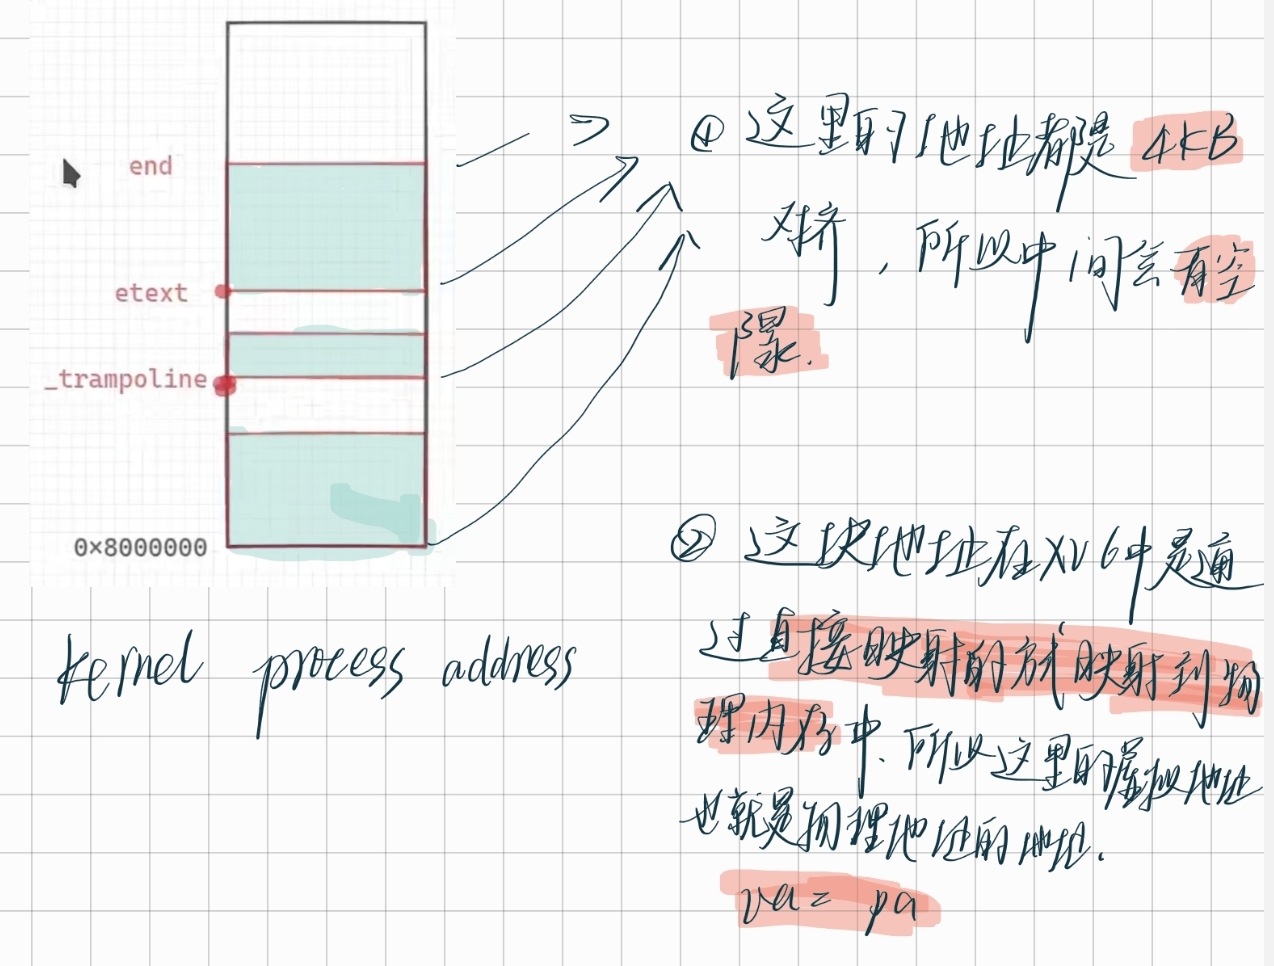 end
etext
_trampoline
0×8000000
kernel process address
① 这里的地址都是 4KB
对齐，所以中间会有空
隙.
② 这块地址在XV6中是通
过直接映射的方式映射到物
理内存中、所以这里的虚拟地址
也就是物理地址的地址.
va = pa